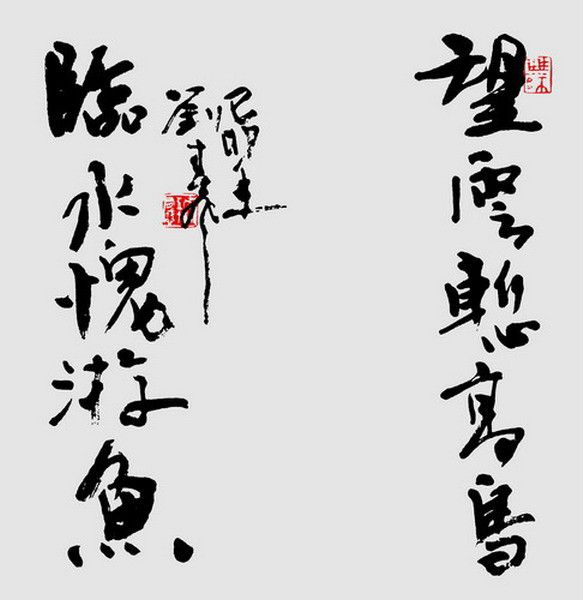 望雲慙高鳥
臨水愧游魚
劉